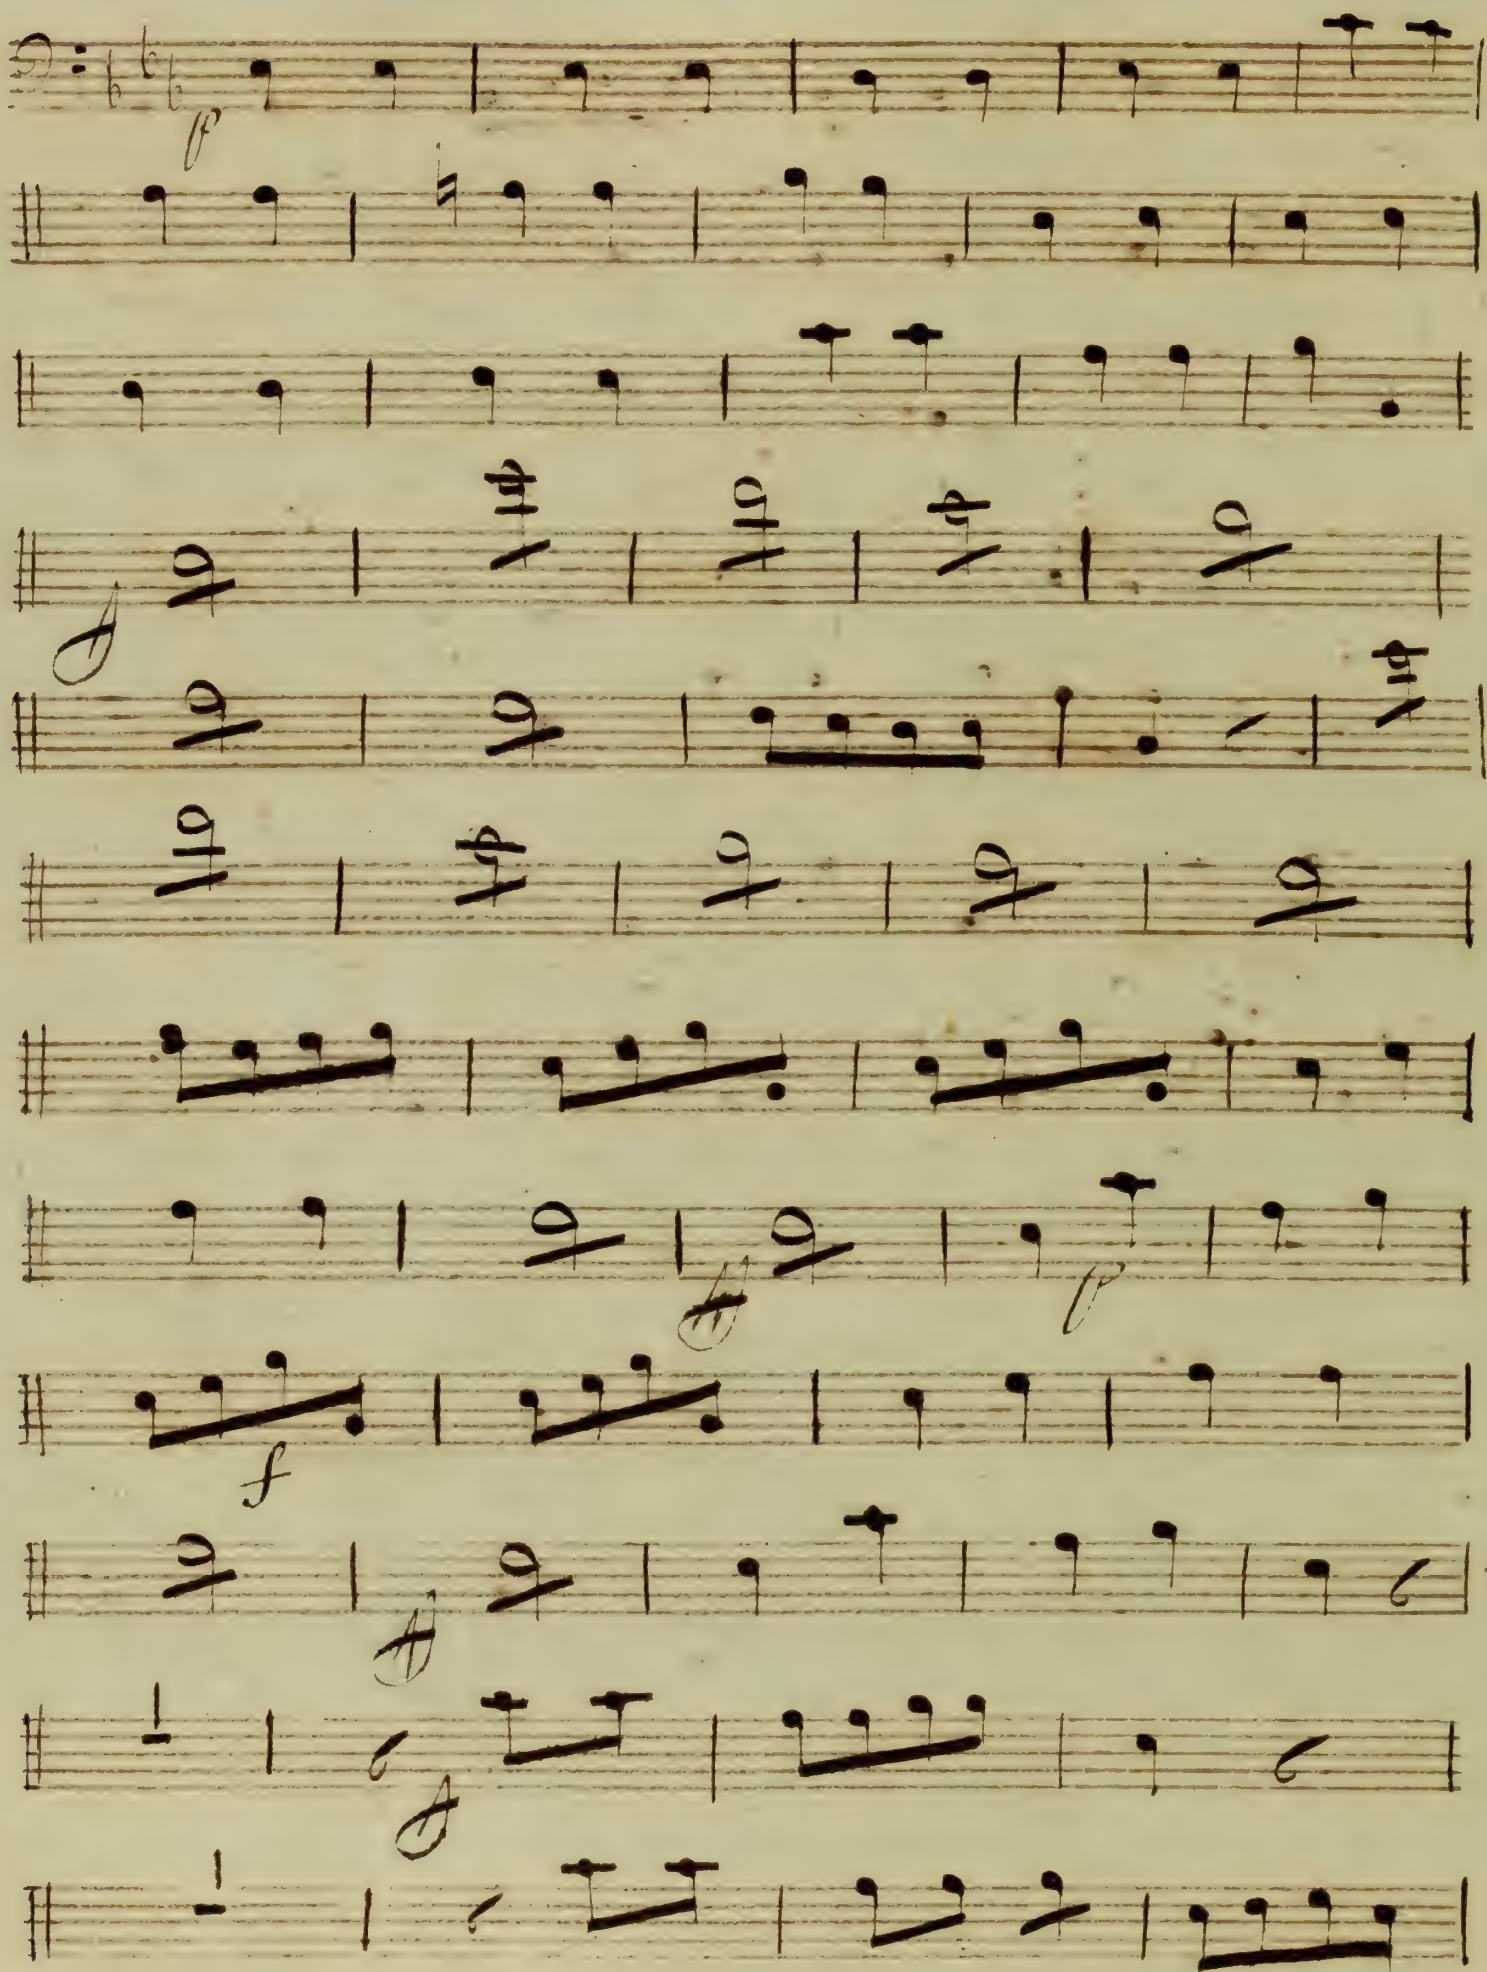 p
ff
ff
p
f
ff
ff